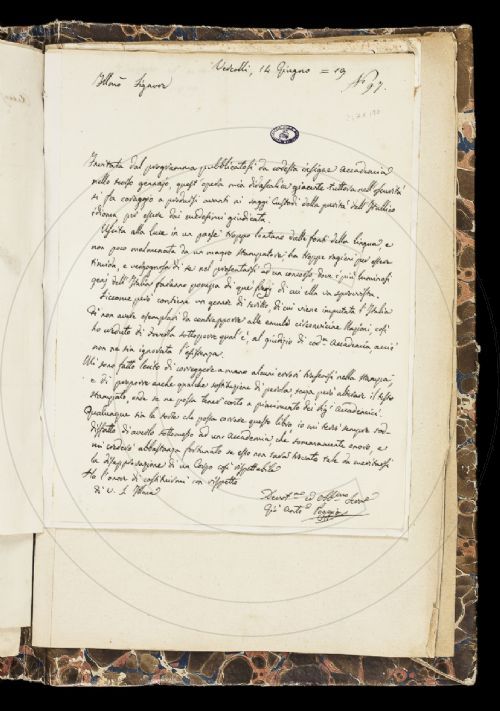 Vercelli, 14 Giugno = 19
No 97.
Illmo Signore
Invitata dal programma pubblicatosi da codesta insigne Accademia
nello scorso gennajo, quest'opera mia didascalica giacente tuttora nell'oscurità
si fa coraggio a prodursi avanti ai saggi Custodi della purità dell'Italico
idioma per essere dai medesimi giudicata.
Uscita alla luce in un paese troppo lontano dalle fonti della lingua, e
non poco malmenata da un magro stampatore ha troppe ragioni per essere
timida, e vergognosa di se nel presentarsi ad un consesso, dove i più luminosi
genj dell'Italia faranno pompa di que' pregj di cui ella va sprovvista.
Siccome però contiene un genere di scritto, di cui viene imputata l'Italia
di non avere esemplari da contrapporre alle emule circonvicine Nazioni, così
ho creduto di doverla sottoporre qual'è, al giudizio di cod.a Accademia, acciò
non ne sia ignorata l'esistenza.
Mi sono fatto lecito di correggere a mano alcuni errori trascorsi nella stampa,
e di proporre anche qualche sostituzione di parola, senza però alterare il testo
stampato, onde se ne possa tener conto a piacimento dei Sig.i Accademici.
Qualunque sia la sorte che possa correre questo libro io mi terrò sempre sod-
disfatto di averlo sottomesso ad un'Accademia che sommamente onoro, e
mi crederò abbastanza fortunato se esso non sarà trovato tale da meritarsi
la disapprovazione di un Corpo così rispettabile
Ho l'onore di costituirmi con rispetto
di V. S. Illma
Devot.mo ed Obb.mo Serv.e
Gio Ant.o Poggio